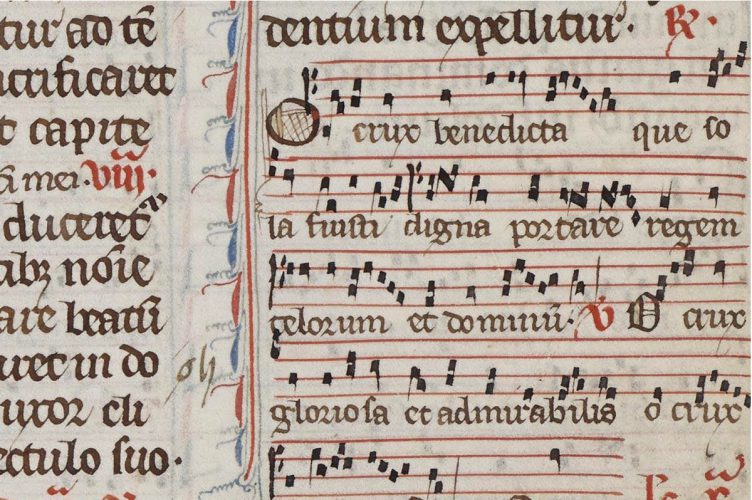 tur ad te̅
acrificaret
t capite
mei · viii ·
duceret
tibꝫ no̅ie
are beatu̅
uret in do
uxor eli
ectulo suo ·
dentium expellitur · ℟
O crux benedicta que so
la fuisti digna portare regem
celorum et dominu̅ · V O crux
gloriosa et admirabilis o crux